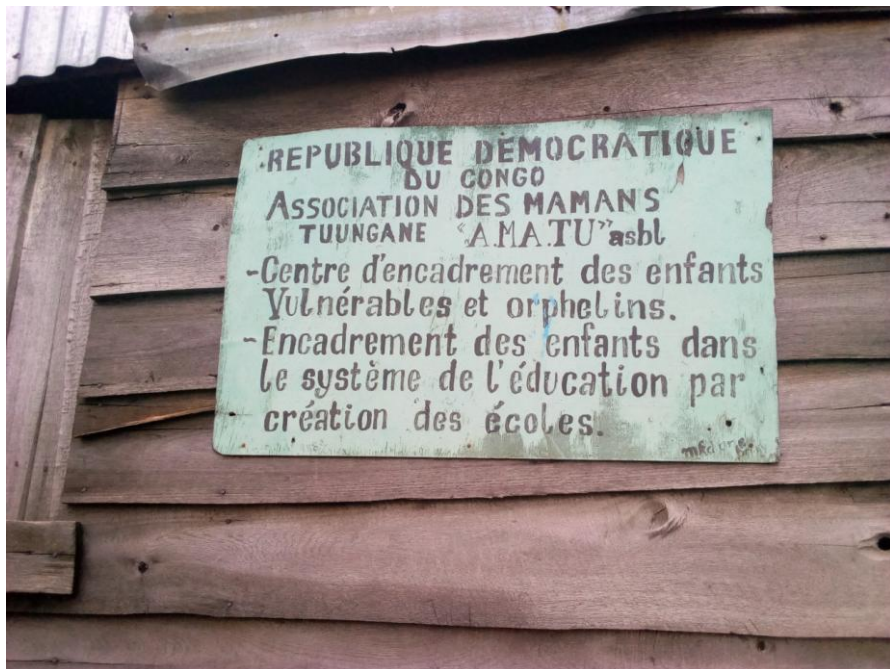 REPUBLIQUE DEMOCRATIQUE
DU CONGO
ASSOCIATION DES MAMANS
TUUNGANE "A.MA.TU" asbl
-Centre d'encadrement des enfants
Vulnérables et orphelins.
-Encadrement des enfants dans
le système de l'éducation par
création des écoles.